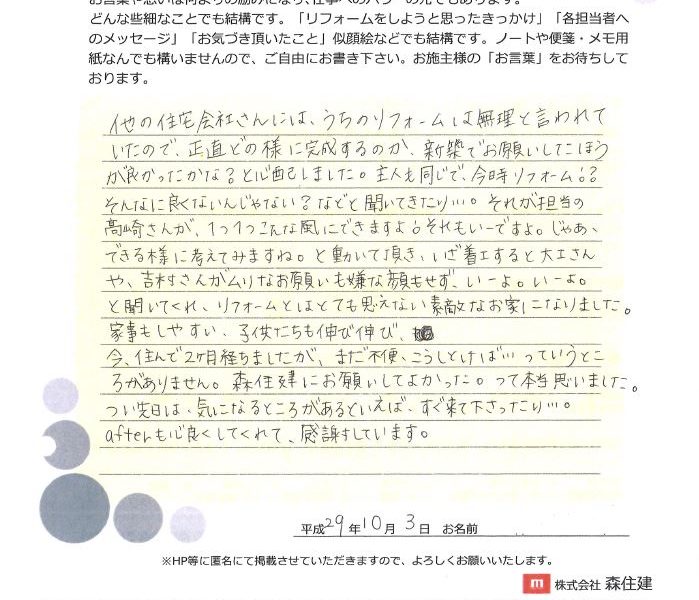 お言葉や思いは何よりの励みになり、仕事へのパワーの元でもあります。
どんな些細なことでも結構です。「リフォームをしようと思ったきっかけ」「各担当者へ
のメッセージ」「お気づき頂いたこと」似顔絵などでも結構です。ノートや便箋・メモ用
紙なんでも構いませんので、ご自由にお書き下さい。お施主様の「お言葉」をお待ちして
おります。
他の住宅会社さんには、うちのリフォームは無理と言われて
いたので、正直どの様に完成するのか、新築でお願いしたほう
が良かったかな？と心配しました。主人も同じで、今時リフォーム!?
そんなに良くないんじゃない？などと聞いてきたり…。それが担当の
高崎さんが、1つ1つこんな風にできますよ!それもいーですよ。じゃあ、
できる様に考えてみますね。と動いて頂き、いざ着工すると大工さん
や、吉村さんがムリなお願いも嫌な顔もせず、いーよ。いーよ。
と聞いてくれ、リフォームとはとても思えない素敵なお家になりました。
家事もしやすい、子供たちも伸び伸び、
今、住んで2ヶ月経ちましたが、まだ不便、こうしとけば…っていうとこ
ろがありません。森住建にお願いしてよかった。って本当思いました。
つい先日は、気になるところがあるといえば、すぐ来て下さったり…。
afterも心良くしてくれて、感謝しています。
平成29年10月3日 お名前
※HP等に匿名にて掲載させていただきますので、よろしくお願いいたします。
m 株式会社 森住建